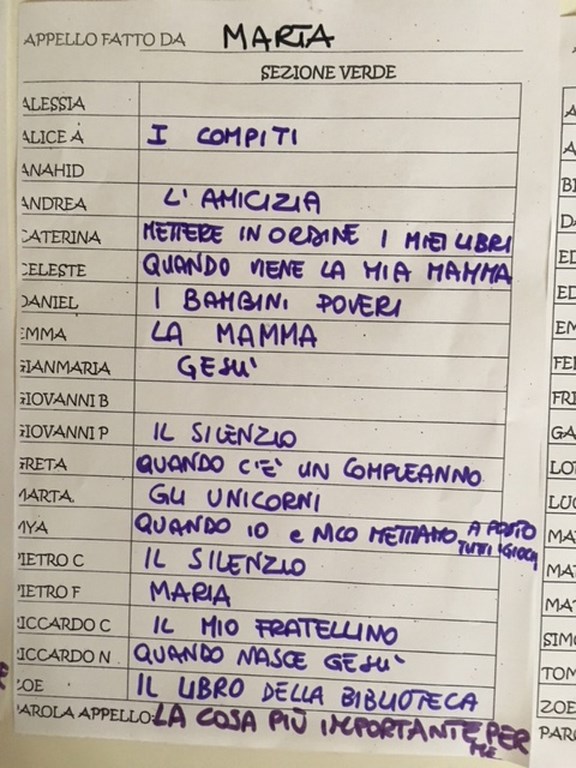 APPELLO FATTO DA MARTA
SEZIONE VERDE
ALESSIA
ALICE A I COMPITI
ANAHID
ANDREA L'AMICIZIA
CATERINA METTERE IN ORDINE I MIEI LIBRI
CELESTE QUANDO VIENE LA MIA MAMMA
DANIEL I BAMBINI POVERI
EMMA LA MAMMA
GIANMARIA GESU'
GIOVANNI B
GIOVANNI P IL SILENZIO
GRETA QUANDO C'E' UN COMPLEANNO
MARTA GLI UNICORNI
MYA QUANDO IO e NICO METTIAMO A POSTO TUTTI I GIOCHI
PIETRO C IL SILENZIO
PIETRO F MARIA
RICCARDO C IL MIO FRATELLINO
RICCARDO N QUANDO NASCE GESU'
ZOE IL LIBRO DELLA BIBLIOTECA
PAROLA APPELLO: LA COSA PIÙ IMPORTANTE PER ME
A
A
BI
DA
ED
ED
EM
FE
FRI
GA
LO
LUC
MA
MA
MA
SIMO
TOM
ZOE
PARO